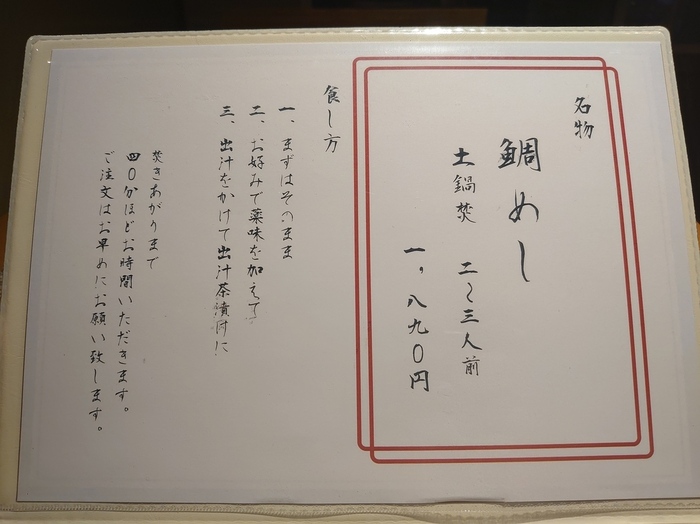 名物
鯛めし
土鍋焚 二〜三人前
一，八九〇円
食し方
一、まずはそのまま
二、お好みで薬味を加えて
三、出汁をかけて出汁茶漬けに
焚きあがりまで
四〇分ほどお時間いただきます。
ご注文はお早めにお願い致します。